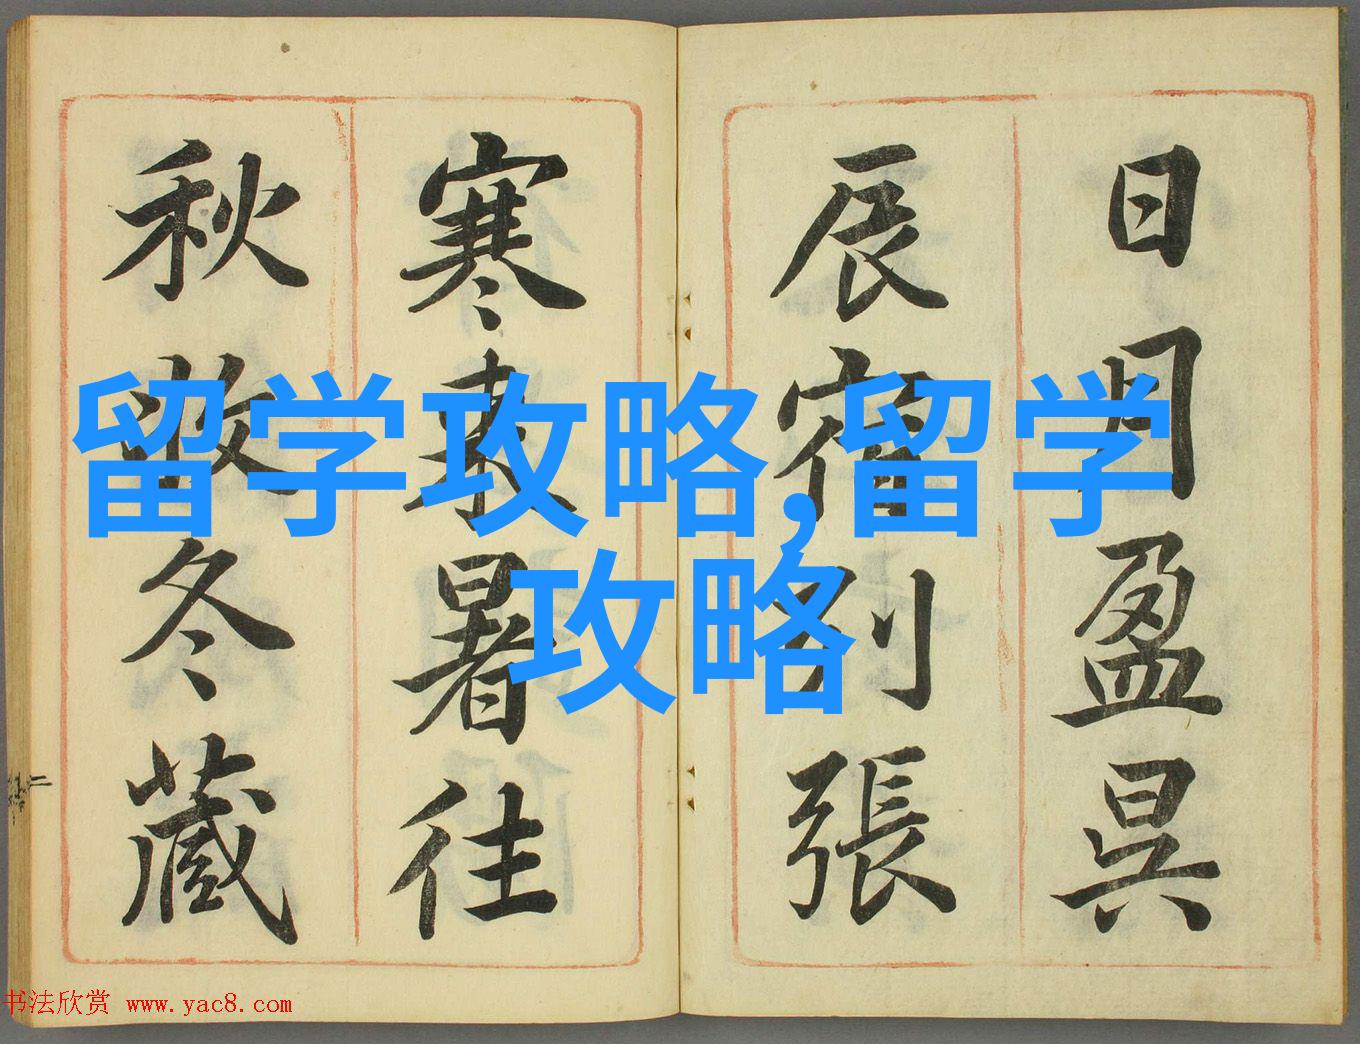 日月盈昃
辰宿列張
寒來暑往
秋收冬藏
留学攻略,留学
攻略
书法欣赏 www.yac8.com